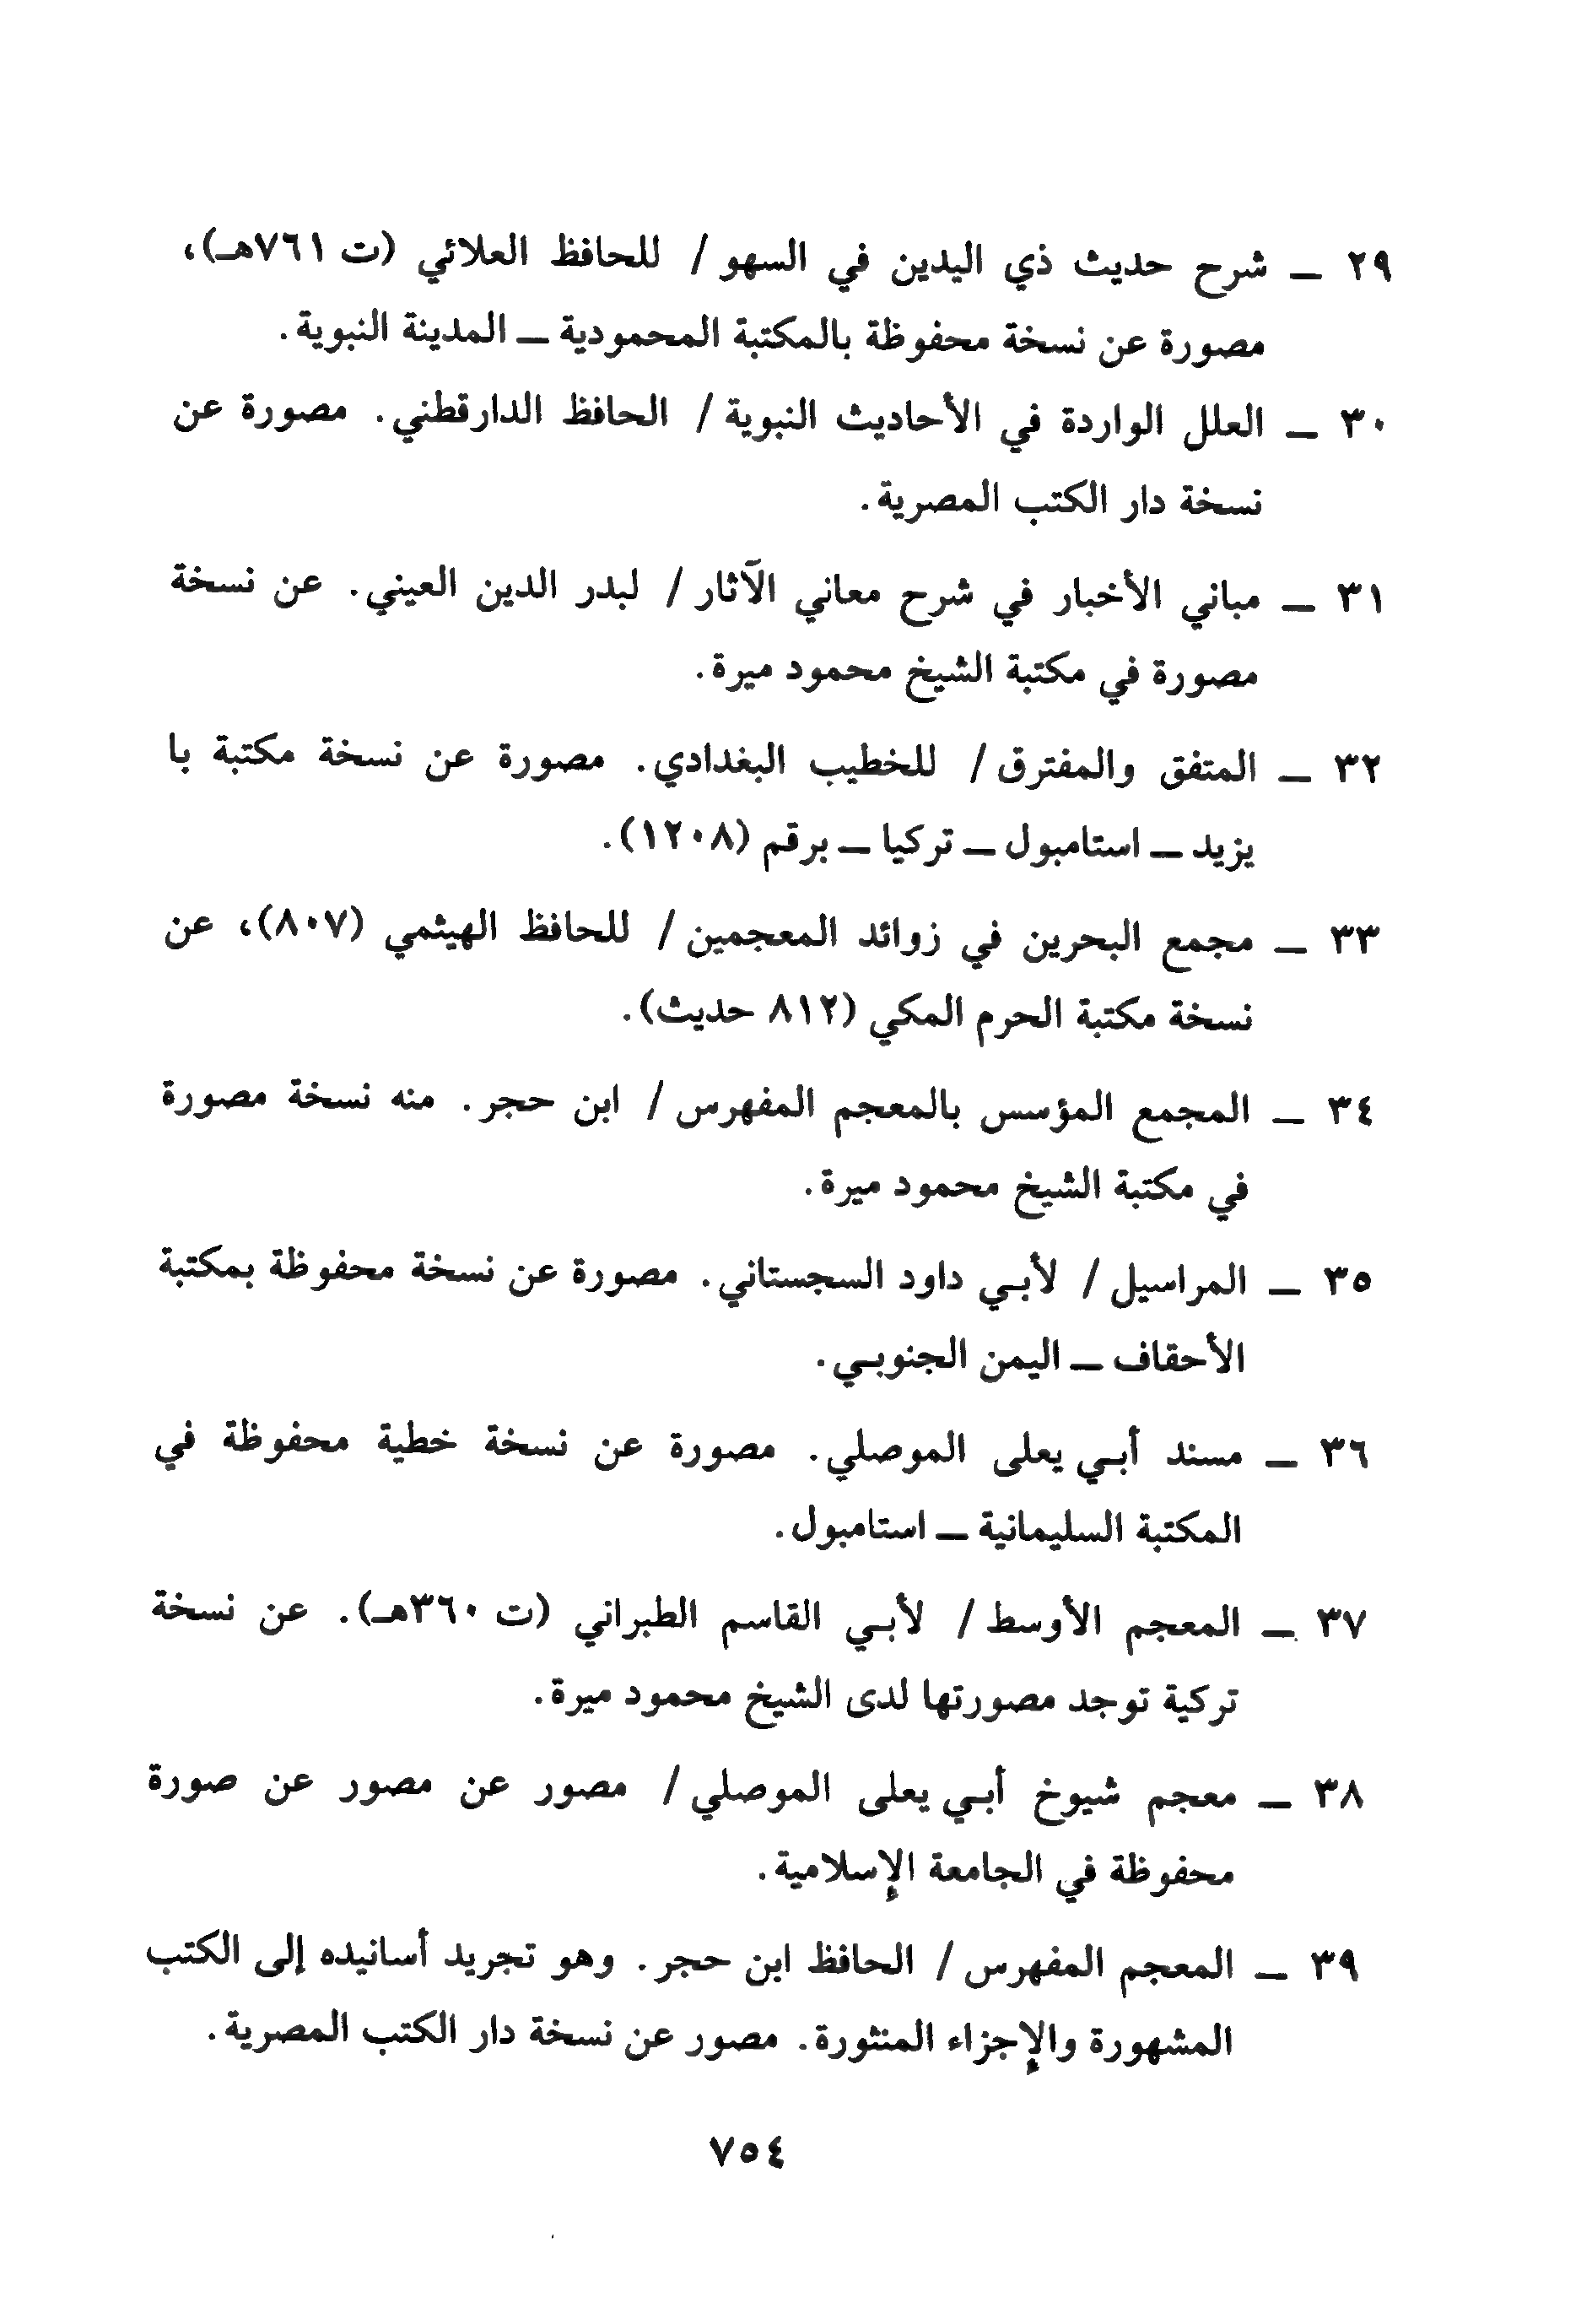 ٢٩ ــ شرح حديث ذي اليدين في السهو / للحافظ العلائي (ت ٧٦١هـ)،
مصورة عن نسخة محفوظة بالمكتبة المحمودية ــ المدينة النبوية.
٣٠ ــ العلل الواردة في الأحاديث النبوية / الحافظ الدارقطني. مصورة عن
نسخة دار الكتب المصرية.
٣١ ــ مباني الأخبار في شرح معاني الآثار / لبدر الدين العيني. عن نسخة
مصورة في مكتبة الشيخ محمود ميرة.
٣٢ ــ المتفق والمفترق / للخطيب البغدادي. مصورة عن نسخة مكتبة با
يزيد ــ استامبول ــ تركيا ــ برقم (١٢٠٨).
٣٣ ــ مجمع البحرين في زوائد المعجمين / للحافظ الهيثمي (٨٠٧)، عن
نسخة مكتبة الحرم المكي (٨١٢ حديث).
٣٤ ــ المجمع المؤسس بالمعجم المفهرس / ابن حجر. منه نسخة مصورة
في مكتبة الشيخ محمود ميرة.
٣٥ ــ المراسيل / لأبـي داود السجستاني. مصورة عن نسخة محفوظة بمكتبة
الأحقاف ــ اليمن الجنوبـي.
٣٦ ــ مسند أبـي يعلى الموصلي. مصورة عن نسخة خطية محفوظة في
المكتبة السليمانية ــ استامبول.
٣٧ ــ المعجم الأوسط / لأبـي القاسم الطبراني (ت ٣٦٠هـ). عن نسخة
تركية توجد مصورتها لدى الشيخ محمود ميرة.
٣٨ ــ معجم شيوخ أبـي يعلى الموصلي / مصور عن مصور عن صورة
محفوظة في الجامعة الإسلامية.
٣٩ ــ المعجم المفهرس / الحافظ ابن حجر. وهو تجريد أسانيده إلى الكتب
المشهورة والإجزاء المنثورة. مصور عن نسخة دار الكتب المصرية.
٧٥٤